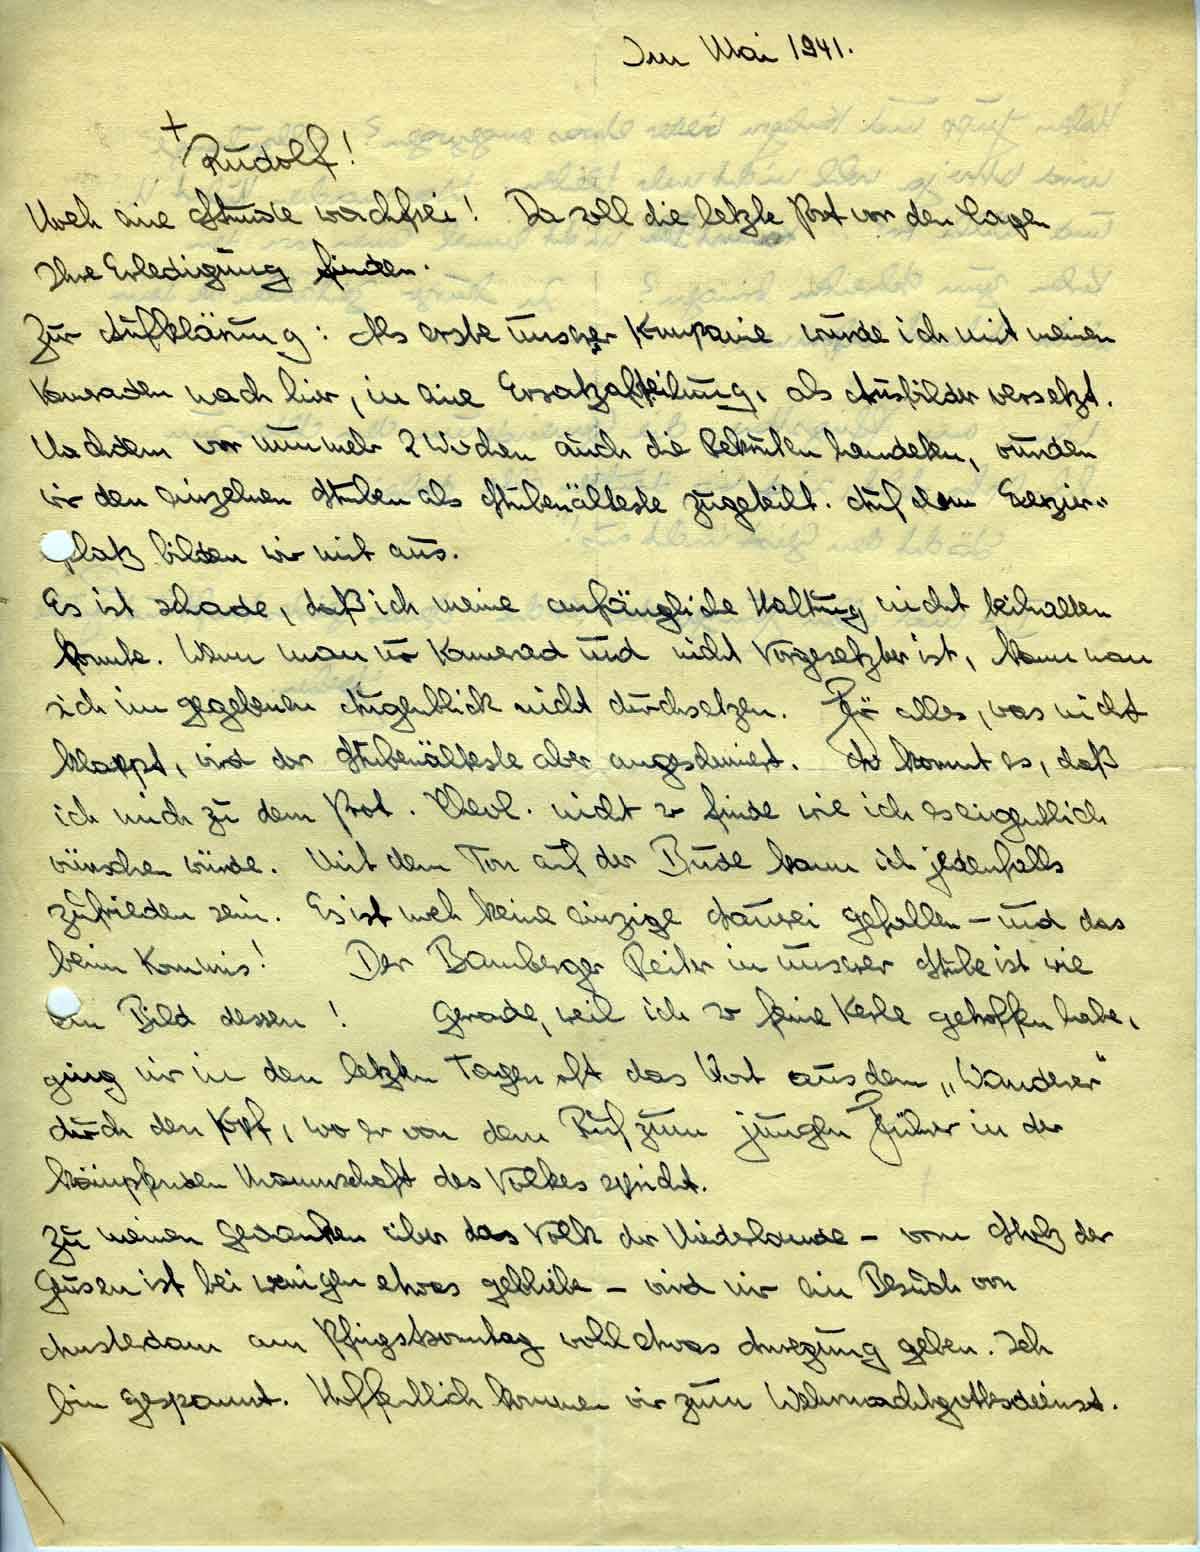 Im Mai 1941.
+
Rudolf!
Noch eine Stunde wachfrei! Da soll die letzte Post vor den Tagen
Ihre Erledigung finden.
Zur Aufklärung: Als erste unserer Kompanie wurde ich mit meinen
Kameraden nach hier, in eine Ersatzabteilung, als Ausbilder versetzt.
Nachdem vor nunmehr 2 Wochen auch die Rekruten landeten, wurden
wir den einzelnen Stuben als Stubenälteste zugeteilt. Auf dem Exerzier-
platz bilden wir mit aus.
Es ist schade, daß ich meine anfängliche Haltung nicht beihalten
konnte. Wenn man nur Kamerad und nicht Vorgesetzter ist, kann man
sich im gegebenen Augenblick nicht durchsetzen. Für alles, was nicht
klappt, wird der Stubenälteste aber angeschmiert. So kommt es, daß
ich mich zu dem Prot. Theol. nicht so finde wie ich es eigentlich
wünschen würde. Mit dem Ton auf der Bude kann ich jedenfalls
zufrieden sein. Es ist noch keine einzige Sauerei gefallen – und das
beim Kommis! Der Bamberger Reiter in unserer Stube ist wie
ein Bild dessen! Gerade, weil ich so feine Kerle getroffen habe,
ging mir in den letzten Tagen oft das Wort aus dem „Wanderer"
durch den Kopf, wo er von dem Ruf zum jungen Führer in der
kämpfenden Mannschaft des Volkes spricht.
Zu meinen Gedanken über das Volk der Niederlande – vom Stolz der
Geusen ist bei wenigen etwas geblieben – wird mir ein Besuch von
Amsterdam am Pfingstsonntag wohl etwas Anregung geben. Ich
bin gespannt. Hoffentlich kommen wir zum Wehrmachtgottesdienst.